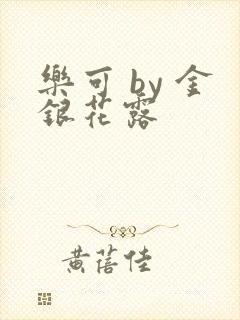 樂可 by 金
銀花露
黄蓓佳